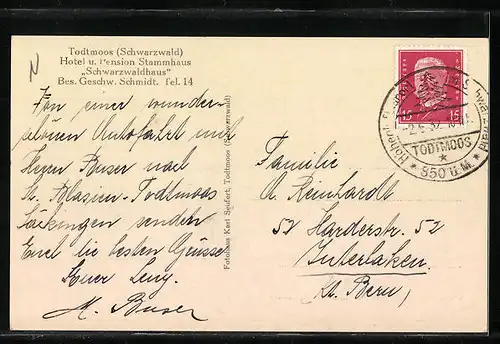 N
Todtmoos (Schwarzwald)
Hotel u. Pension Stammhaus
„Schwarzwaldhaus“
Bes. Geschw. Schmidt. Tel. 14
Von einer wunder-
schönen Autofahrt mit
Herrn Buser nach
St. Blasien-Todtmoos
Säckingen senden
Euch die besten Grüsse
Euer
M. Buser
Fotohaus Karl Seufert, Todtmoos (Schwarzwald)
15 15
TODTMOOS
850 ü. M.
Familie
A. Reinhardt
52 Harderstr. 52
Interlaken
Kt. Bern